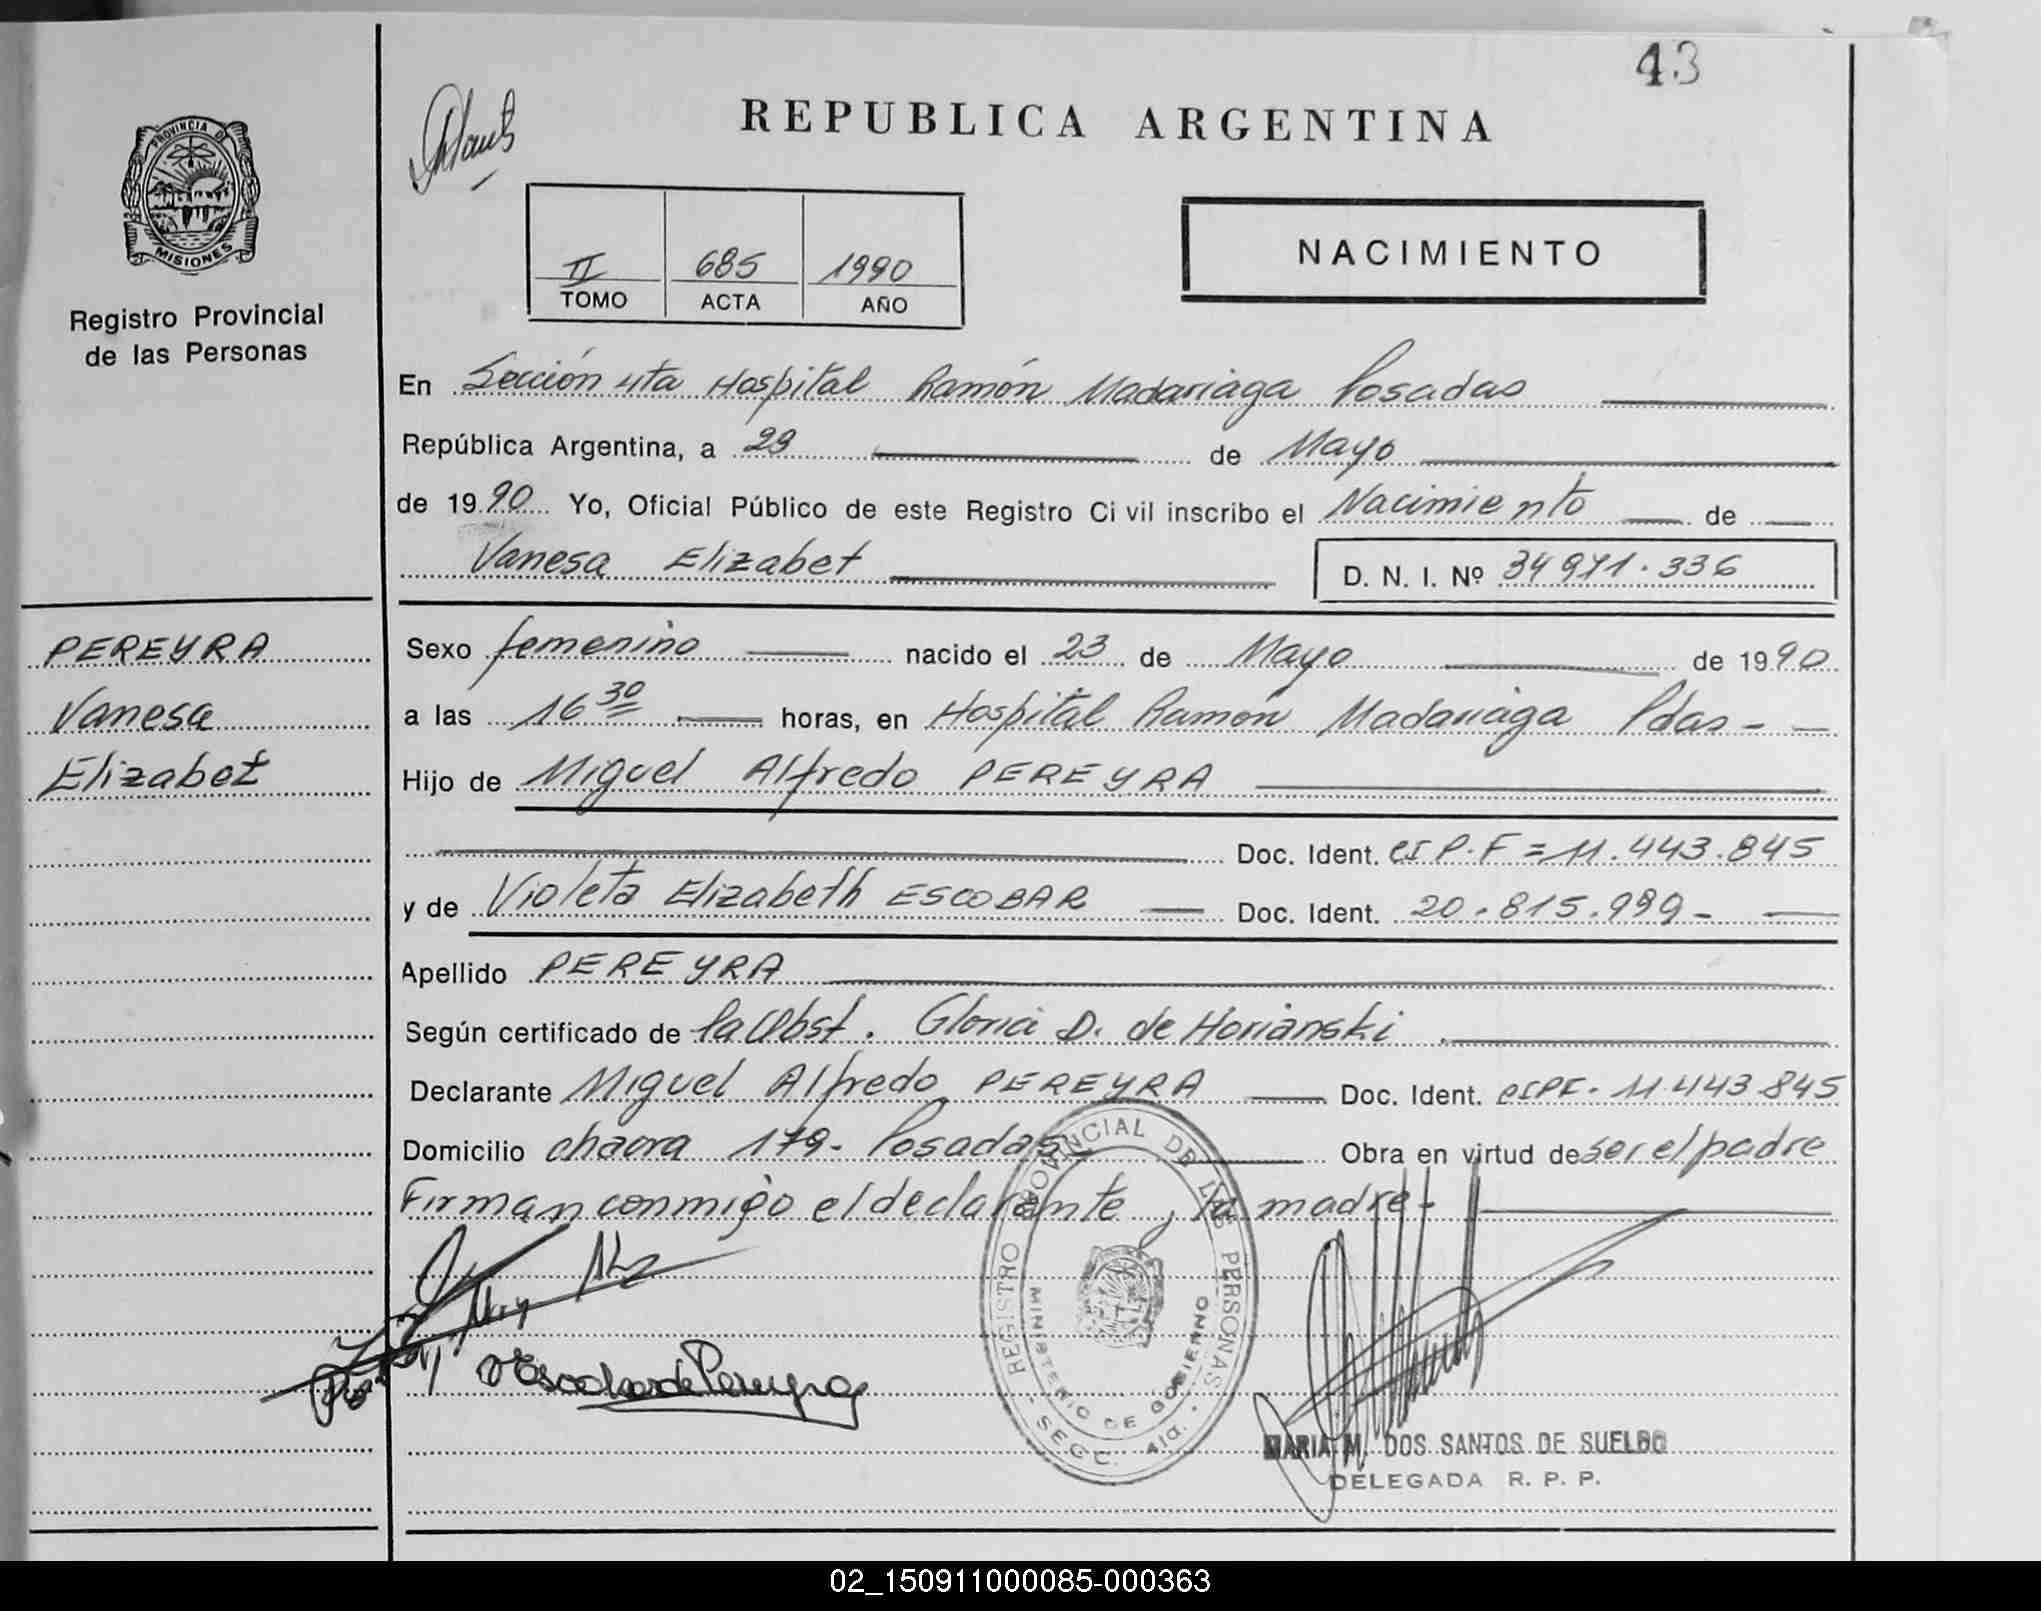 43
REPUBLICA ARGENTINA
PROVINCIA D
MISIONES
Registro Provincial
de las Personas
II 685 1990
TOMO ACTA AÑO
NACIMIENTO
En Sección 4ta Hospital Ramón Madariaga Posadas
República Argentina, a 29 de Mayo
de 1990 Yo, Oficial Público de este Registro Ci vil inscribo el Nacimiento de
Vanesa Elizabet D. N. I. Nº 34971.336
PEREYRA
Vanesa
Elizabet
Sexo femenino nacido el 23 de Mayo de 1990
a las 16 30 horas, en Hospital Ramón Madariaga Pdas -
Hijo de Miguel Alfredo PEREYRA
Doc. Ident. CI P.F = 11.443.845
y de Violeta Elizabeth ESCOBAR Doc. Ident. 20.815.999 -
Apellido PEREYRA
Según certificado de la Obst. Gloria D. de Horianski
Declarante Miguel Alfredo PEREYRA Doc. Ident. CIPF. 11.443.845
Domicilio chacra 179 - Posadas Obra en virtud de ser el padre
Firman conmigo el declarante y la madre -
VEscobar de Pereyra
REGISTRO PROVINCIAL DE LAS PERSONAS
MINISTERIO DE GOBIERNO
SECC. 4ta.
MARIA M. DOS SANTOS DE SUELDO
DELEGADA R. P. P.
02_150911000085-000363